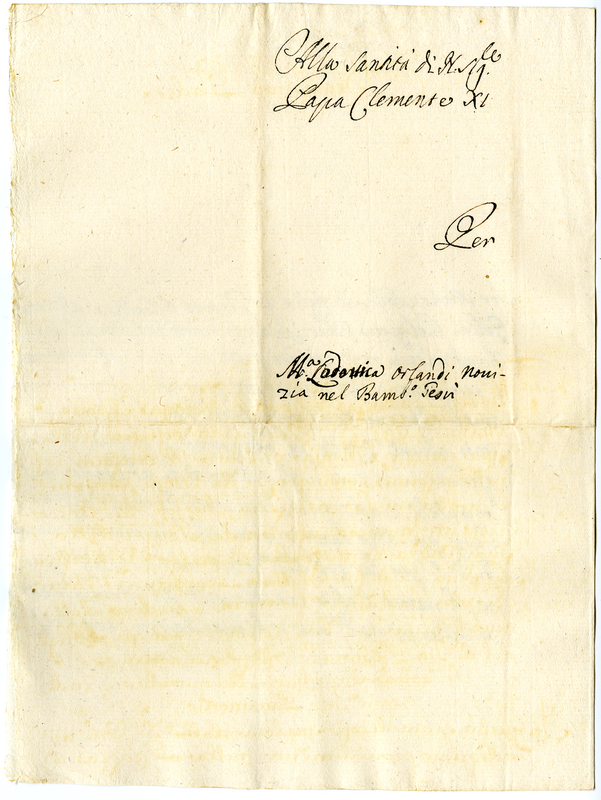 Alla Santità di N. Sig.re
Papa Clemente XI
Per
M.a Lodovica Orlandi Novi-
zia nel Bamb.o Gesù